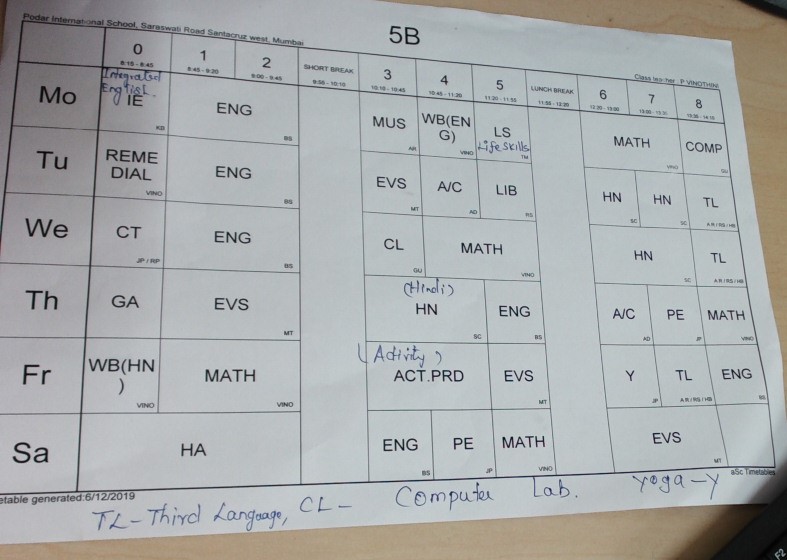 Podar International School, Saraswati Road Santacruz west, Mumbai
5B
Class teacher P VINOTHINI
0 1 2 SHORT BREAK 3 4 5 LUNCH BREAK 6 7 8
8:15 - 8:45 8:45 - 9:20 9:50 - 10:10 10:10 - 10:45 10:45 - 11:20 11:20 - 11:55 11:55 - 12:20
Integrated
English.
Mo IE KB ENG BS MUS AR WB(EN
G) VINO LS Life Skills TM MATH VINO COMP GU
Tu REME
DIAL VINO ENG BS EVS MT A/C AD LIB RS HN SC HN SC TL AR / RS / HB
We CT JP / RP ENG BS CL GU MATH VINO HN SC TL AR / RS / HB
(Hindi)
Th GA EVS MT HN SC ENG BS A/C AD PE JP MATH VINO
(Activity)
Fr WB(HN
) VINO MATH VINO ACT.PRD EVS MT Y JP TL AR / RS / HB ENG BS
Sa HA ENG BS PE JP MATH VINO EVS MT
etable generated:6/12/2019 aSc Timetables
TL - Third Language, CL - Computer Lab. Yoga - Y
F2